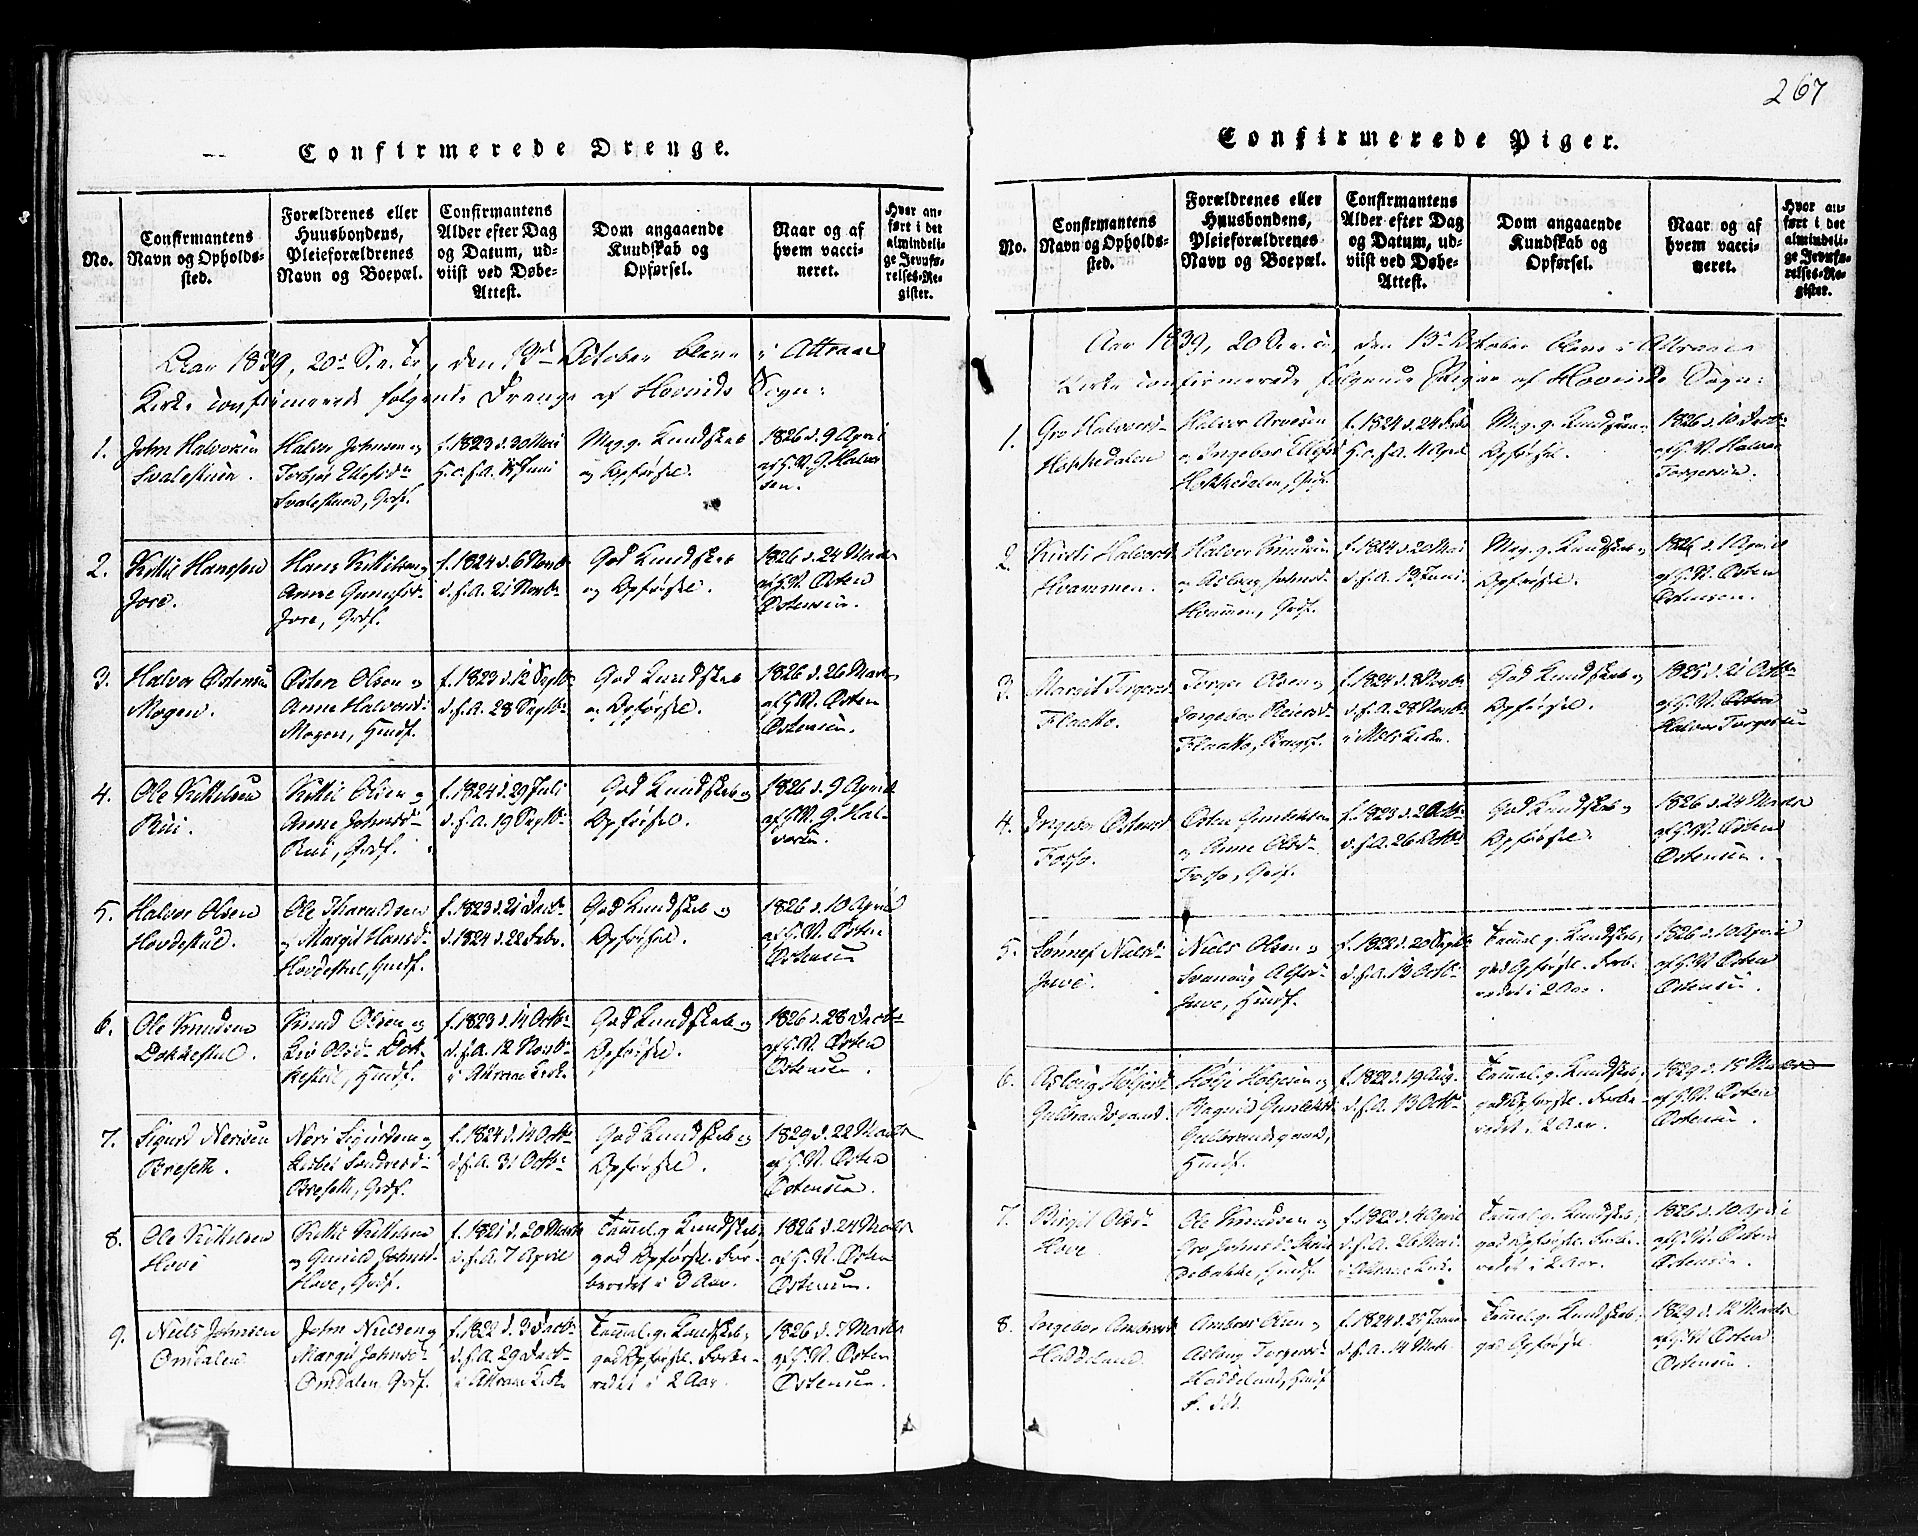 267
Confirmerede Drenge.
No.
Confirmantens
Navn og Opholds-
sted.
Forældrenes eller
Huusbondens,
Pleieforældrenes
Navn og Boepæl.
Confirmantens
Alder efter Dag
og Datum, ud-
viist ved Døbe-
Attest.
Dom angaaende
Kundskab og
Opførsel.
Naar og af
hvem vacci-
neret.
Hvor an-
ført i det
almindeli-
ge Jevnfø-
relses-Re-
gister.
Aar 1839, 20de S. e. Tr, den 13de October bleve i Attraae
Kirke confirmerede følgende Drenge af Hovinds Sogn:
1.
John Halvorsen
Svalestuen.
Halvor Johnsen og
Torbjør Ellefsd:
Svalestuen, Grdf.
f. 1823 d. 30 Mai
H. o. f. A. 15 Juni
Meg. g. Kundskab
og Opførsel.
1826 d. 9 April
af G. N. G. Halvor
sen.
2.
Kittil Hanssen
Jore.
Hans Kittilsen og
Anne Gunulfsd:
Jore, Grdf.
f. 1824 d. 6 Novb:
d. s. A. 21 Novb:
God Kundskab
og Opførsel.
1826 d. 24 Marts
af G. N. Østen
Østensen.
3.
Halvor Østensen
Mogen.
Østen Olsen og
Anne Halvorsd:
Mogen, Hmdf.
f. 1823 d. 12 Septb:
d. s. A. 28 Septb:
God Kundskab
og Opførsel.
1826 d. 26 Marts
af G. N. Østen
Østensen.
4.
Ole Kittilsen
Rui.
Kittil Olsen og
Anne Johnsd:
Rui, Grdf.
f. 1824 d. 29 Juli
d. s. A. 19 Septb:
God Kundskab og
Opførsel.
1826 d. 9 April
af G. N. G. Hal-
vorsen.
5.
Halvor Olsen
Hovdestul.
Ole Tharaldsen
og Margit Hansd:
Hovdestul, Hmdf.
f. 1823 d. 21 Decb:
d. 1824 d. 22 Febr.
God Kundskab og
Opførsel.
1826 d. 10 April
af G. N. Østen
Østensen
6.
Ole Knudsen
Dokkestul.
Knud Olsen og
Liv Olsd: Dok-
kestul, Hmdf.
f. 1823 d. 14 Octb:
d. s. A. 12 Novb:
i Attraae Kirke
God Kundskab og
Opførsel.
1826 d. 28 Decb:
af G. N. Østen
Østensen.
7.
Sigurd Nerisen
Breseth.
Neri Sigurdsen og
Lisbet Sondresd:
Breseth, Grdf.
f. 1824 d. 14 Octb:
d. s. A. 31 Octb:
God Kundskab og
Opførsel.
1829 d. 22 Marts
af G. N. Østen
Østensen.
8.
Ole Kittelsen
Hove
Kittil Kittelsen
og Gunild Johnsd:
Hove, Grdf.
f. 1821 d. 20 Marts
d. s. A. 7 April
Temmel. g. Kundskab,
god Opførsel. For-
beredet i 3 Aar.
1826 d. 24 Marts
af G. N. Østen
Østensen.
9.
Niels Johnsen
Omdalen
John Nielsen og
Margit Johnsd:
Omdalen, Grdf.
f. 1822 d. 3 Decb:
d. s. A. 29 Decb:
i Attraae Kirke
Temmel. g. Kundskab,
god Opførsel. Forbe-
redet i 2 Aar.
1826 d. 7 Marts
af G. N. Østen
Østensen.
Confirmerede Piger.
No.
Confirmantens
Navn og Opholds-
sted.
Forældrenes eller
Huusbondens,
Pleieforældrenes
Navn og Boepæl.
Confirmantens
Alder efter Dag
og Datum, ud-
viist ved Døbe-
Attest.
Dom angaaende
Kundskab og
Opførsel.
Naar og af
hvem vacci-
neret.
Hvor an-
ført i det
almindeli-
ge Jevnfø-
relses-Re-
gister.
Aar 1839, 20 S. e. Tr, den 13de October bleve i Attraaes
Kirke confirmerede følgende Piger af Hovinds Sogn:
1.
Gro Halvorsd:
Hokkedalen
Halvor Arvesen
og Ingebor Ellefsd:
Hokkedalen, Grdf.
f. 1824 d. 24 Feb.
H. o. f. A. 4 April
Meg. g. Kundskab
Opførsel.
1826 d. 10 Decb:
af G. N. Halvor
Torgersen.
2.
Kirsti Halvorsd:
Hvammen.
Halvor Knudsen
og Aslaug Johnsd:
Hvammen, Grdf.
f. 1824 d. 20 Mai
d. s. A. 13 Juni.
Meg. g. Kundskab og
Opførsel.
1826 d. 1 April
af G. N. Østen
Østensen.
3.
Margit Torgersd:
Flaatto.
Torger Olsen og
Ingebor Reiersd:
Flaatto, Brugsf.
f. 1824 d. 8 Novb:
d. s. A. 28 Novb:
i Mæls Kirke.
God Kundskab og
Opførsel.
1825 d. 21 Octb:
af G. N. Østen
Halvor Torgersen
4.
Ingebor Østensd:
Fosso.
Østen Gunleksen
og Anne Olsd:
Fosso, Grdf.
f. 1823 d. 2 Octb:
d. s. A. 26 Octb:
God Kundskab og
Opførsel.
1826 d. 24 Marts
af G. N. Østen
Østensen.
5.
Sønnef Nielsd:
Juve.
Niels Olsen og
Svanaug
Juve, Hmdf.
f. 1822 d. 20 Septb:
d. s. A. 13 Octb:
Temmel. g. Kundskab,
god Opførsel. Forbe-
redet i 2 Aar.
1826 d. 10 April
af G. N. Østen
Østensen.
6.
Aslaug Holjesd:
Gulbrandsgaard.
Holje Holjesen og
Ragnild Gunleksd:
Gulbrandsgaard,
Hmdf.
f. 1822 d. 19 Aug.
d. s. A. 13 Octb:
Temmel. g. Kundskab,
god Opførsel. Forbe-
redet i 2 Aar.
1829 d. 15 Marts
af G. N. Østen
Østensen.
7.
Birgit Olsd:
Hove
Ole Knudsen og
Gro Johnsd:
debakke, Hmdf.
f. 1822 d. 4 April
d. s. A. 26 Mai.
i Attraae Kirke.
Temmel. g. Kundskab,
god Opførsel. Forbe-
redet i 2 Aar.
1826 d. 10 April
af G. N. Østen
Østensen.
8.
Ingebor Ambersd:
Haddeland.
Ambør Olsen og
Aslaug Torgersd:
Haddeland, Hmdf.
f. 1824 d. 25 Janu
d. s. A. 14 Mart.
Temmel. g. Kundskab,
god Opførsel.
1829 d. 12 Marts
af G. N. Østen
Østensen.